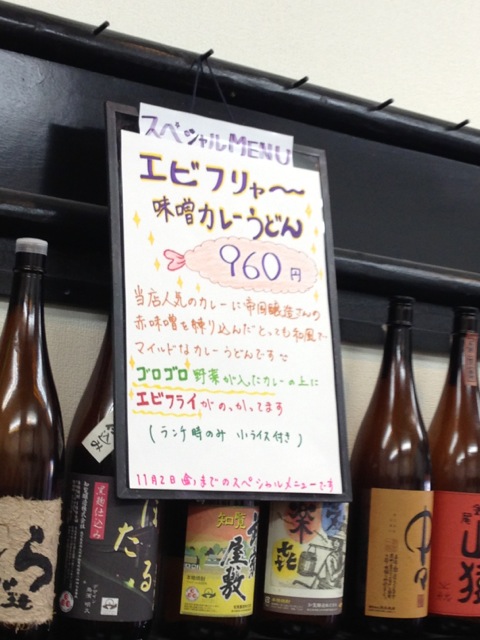 スペシャルMENU
エビフリャ〜〜
味噌カレーうどん
960円
当店人気のカレーに帝国醸造さんの
赤味噌を練り込んだとっても和風で
マイルドなカレーうどんです
ゴロゴロ野菜が入ったカレーの上に
エビフライがのっかってます
(ランチ時のみ 小ライス付き)
11月2日(金)までのスペシャルメニューです
黒麹仕込み
ほたる
知覧
屋敷
山猿